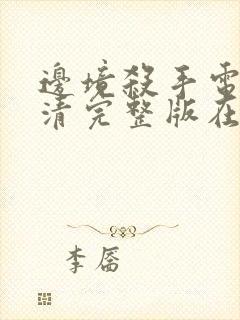 邊境殺手電
清完整版在
李唇